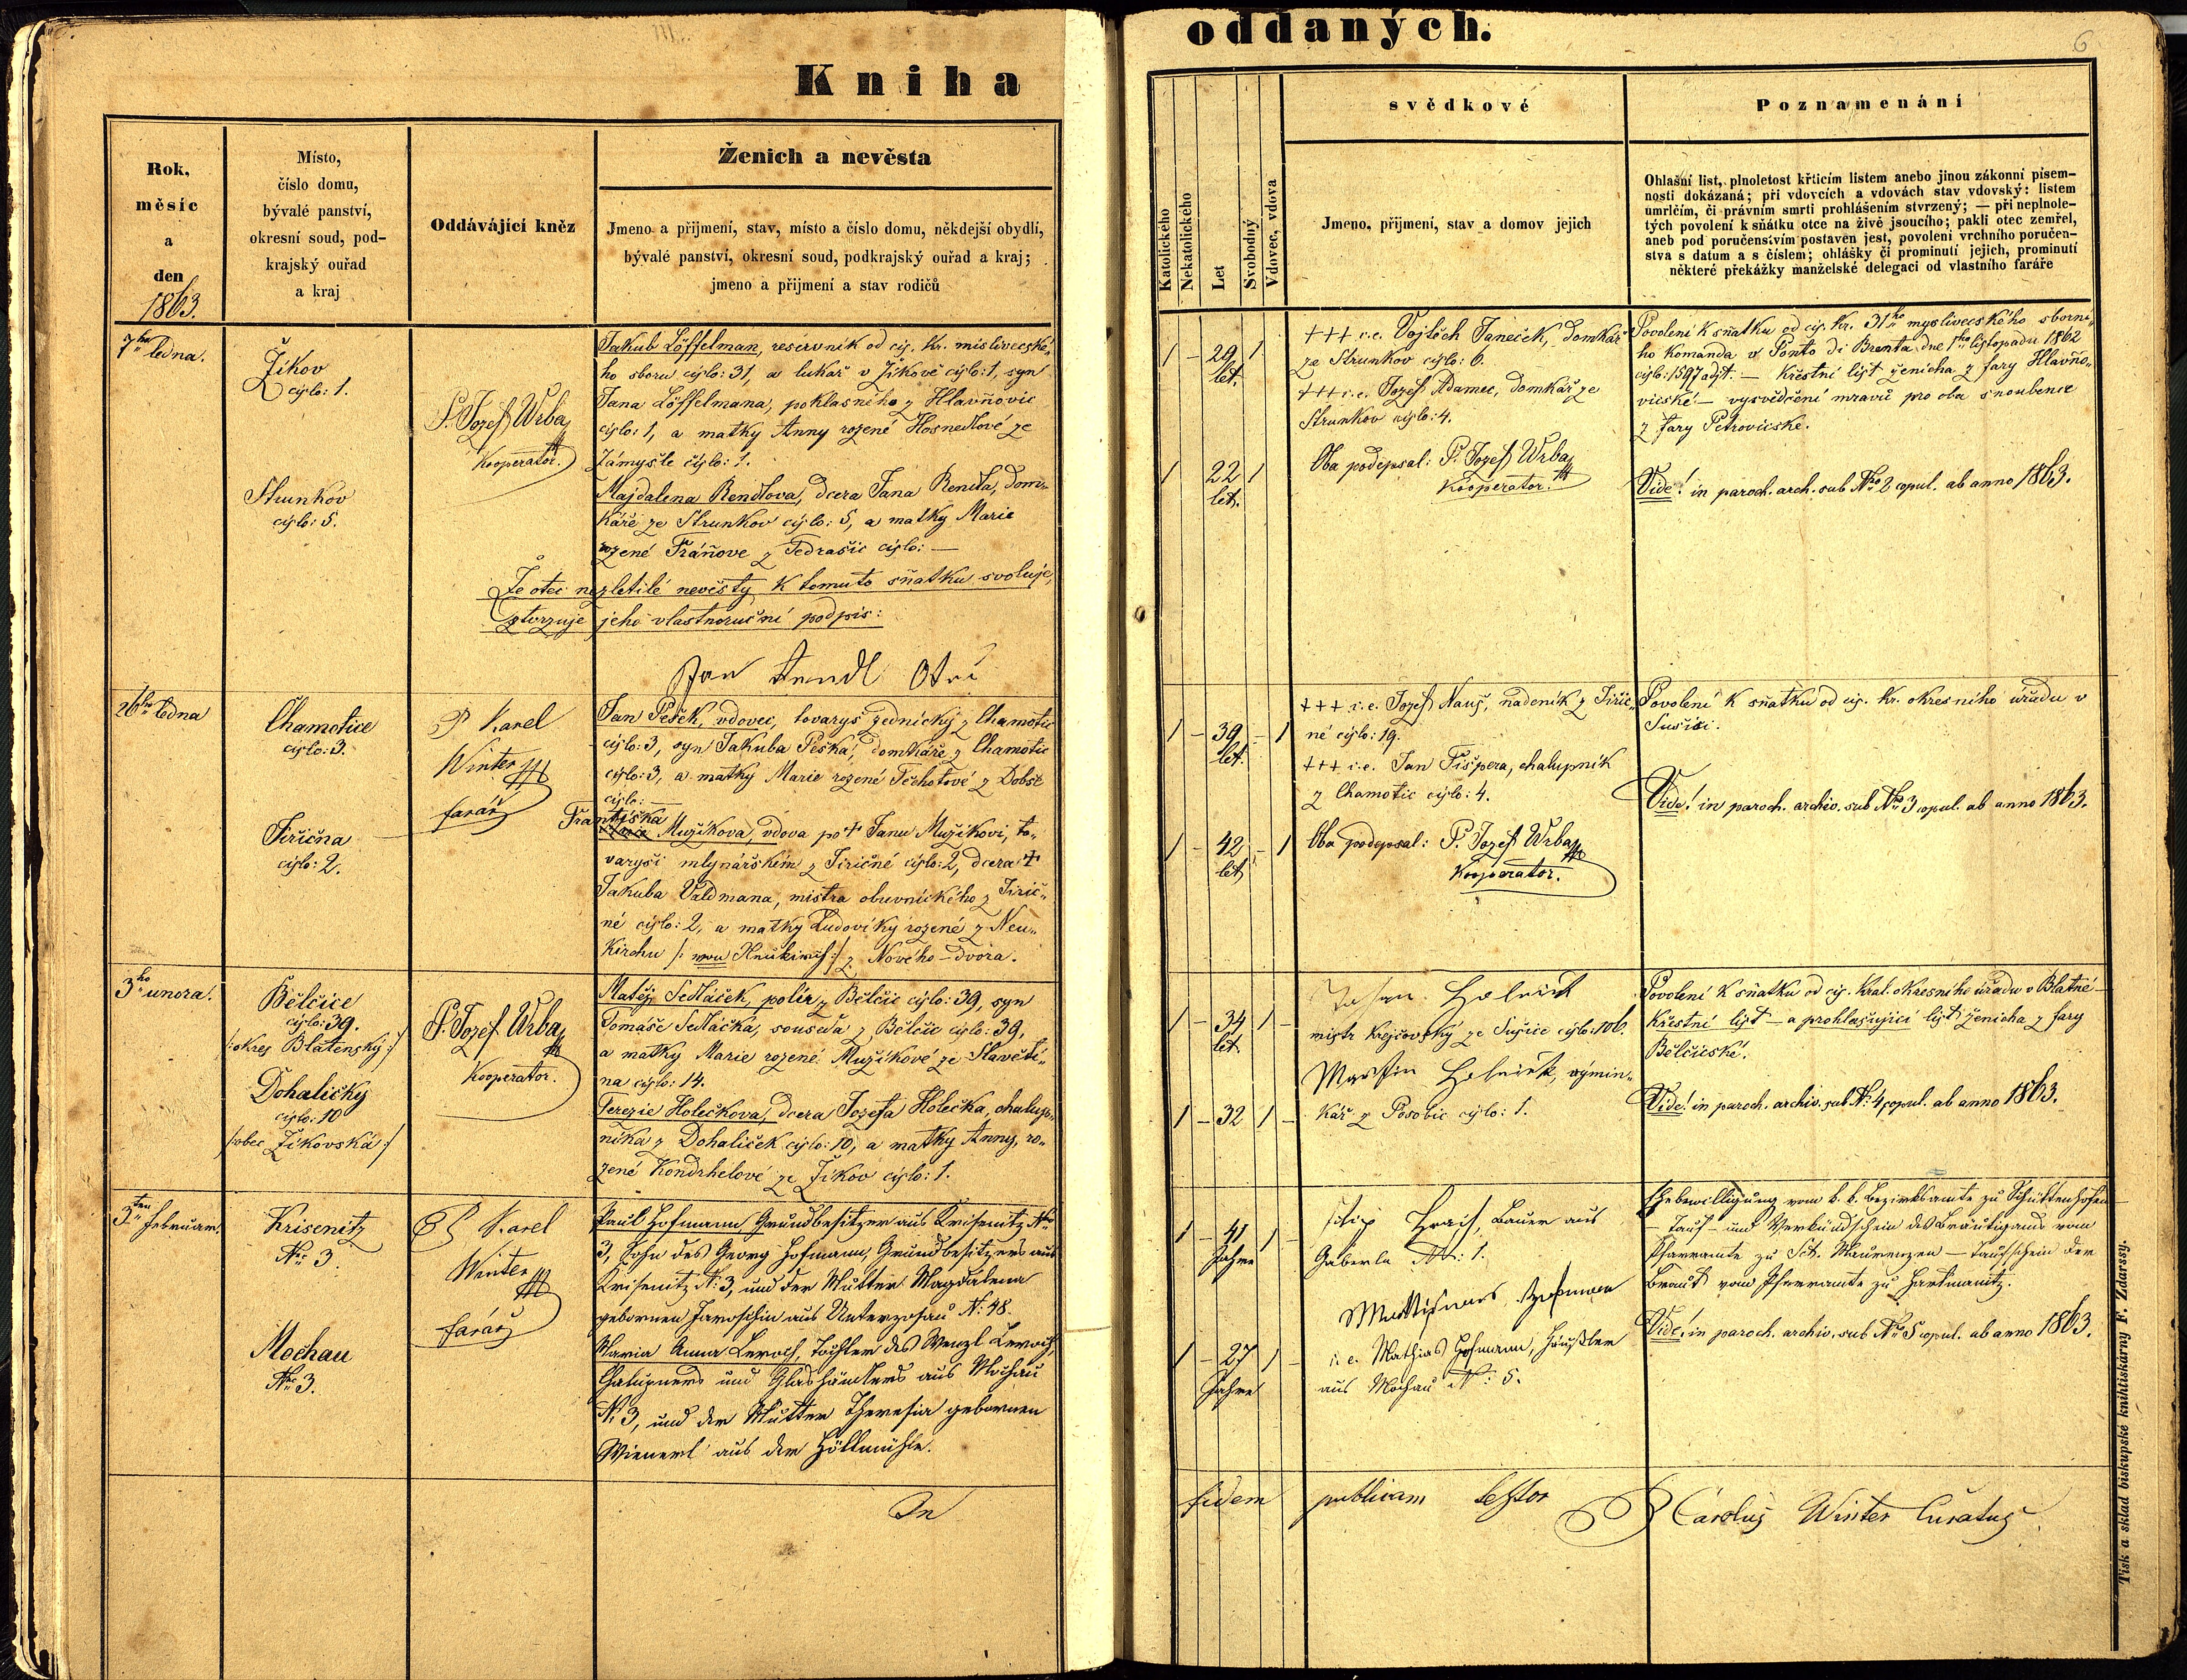 Kniha
oddaných.
6
Rok,
měsíc
a
den
1863.
Místo,
číslo domu,
bývalé panství,
okresní soud, pod-
krajský ouřad
a kraj
Oddávájící kněz
Ženich a nevěsta
Jmeno a přijmení, stav, místo a číslo domu, někdejší obydlí,
bývalé panství, okresní soud, podkrajský ouřad a kraj;
jmeno a přijmení a stav rodičů
Katolického
Nekatolického
Let
Svobodný
Vdovec, vdova
svědkové
Jmeno, přijmení, stav a domov jejich
Poznamenání
Ohlašní list, plnoletost křticím listem anebo jinou zákonní písem-
nosti dokázaná; při vdovcích a vdovách stav vdovský: listem
umrlčím, či právním smrti prohlášením stvrzený; — při neplnole-
tých povolení k sňátku otce na živě jsoucího; pakli otec zemřel,
aneb pod poručenstvím postaven jest, povolení vrchního poručen-
stva s datum a s číslem; ohlášky či prominutí jejich, prominutí
některé překážky manželské delegací od vlastního faráře
7ho ledna.
Žikov
cislo: 1.
Strunkov
cislo: 5.
P. Jozef Wrba
Kooperator.
Jakub Löffelman, reservnik od cis. kr. mislivecské-
ho sboru cislo: 31, a luhař v Žikově cislo: 1, syn
Jana Löffelmana, poklasného z Hlavňovic
cislo: 1, a matky Anny rozené Hosnedlové ze
Zámyšle čislo: 1.
Majdalena Rendlova, dcera Jana Rendla, dom-
káře ze Strunkov cislo: 5, a matky Marie
rozené Fráňove z Tedražic cislo: —
Že otec nezletilé nevěsty k tomuto sňatku svoluje,
stvrzuje jeho vlastnoruční podpis:
Jan
1 – 29 let. 1
1 22 let. 1
+++ i.e. Vojtěch Janeček, domkář
ze Strunkov cislo: 6.
+++ i.e. Jozef Adamec, domkář ze
Strunkov cislo: 4.
Oba podepsal: P. Jozef Wrba
Kooperator.
Povolení k sňatku od cis. kr. 31ho mysliveckého sborní-
ho komanda v Ponto di Brenta dne 1ho listopadu 1862
cislo: 1597 adjt. — Křestní list ženicha z fary Hlavňo-
vicské — vysvědčení mravů pro oba snoubence
z fary Petrovicské.
Vide! in paroch. arch. sub Nro 2 copul. ab anno 1863.
26ho ledna
Chamotice
cislo: 3.
Jiřična
cislo: 2.
P Karel
Winter
farář
Jan Pešek, vdovec, tovaryš zednický z Chamotic
cislo: 3, syn Jakuba Peška, domkáře z Chamotic
cislo: 3, a matky Marie rozené Těchotové z Dobše
cislo: —
Františka
Mužikova, vdova po + Janu Mužikovi, to-
varyši mlynářském z Jiřičné cislo: 2, dcera +
Jakuba Valdmana, mistra obuvnického z Jiřič-
né cislo: 2, a matky Ludoviky rozené z Neu-
kirchu z Nového-dvora.
1 – 39 let. – 1
1 – 42 let – 1
+++ i.e. Jozef Nauš, nadeník z Jiřič-
né cislo: 19.
+++ i.e. Jan Tišpera, chalupník
z Chamotic cislo: 4.
Oba podepsal: P. Jozef Wrba
Kooperator.
Povolení k sňatku od cis. kr. okresního úřadu v
Sušici.
Vide! in paroch. archiv. sub Nro 3 copul. ab anno 1863.
3ho unora.
Bělčice
cislo: 39.
/: okres Blatenský :/
Dohaličky
cislo: 10
/: obec Žikovská :/
P. Jozef Wrba
Kooperator.
Matěj Sedláček, polír z Bělčic cislo: 39, syn
Tomáše Sedláčka, souseda z Bělčic cislo: 39,
a matky Marie rozené Mužikové ze Slavětí-
na cislo: 14.
Terezie Holečkova, dcera Jozefa Holečka, chalup-
níka z Dohaliček cislo: 10, a matky Anny, ro-
zené Kondrhelové ze Žikov cislo: 1.
1 – 34 let. 1 –
1 – 32 1 –
mistr krejčovský ze Sušice cislo: 106.
Martin, výmin-
kář z Posobic cislo: 1.
Povolení k sňatku od cis. král. okresního úřadu v Blatné —
křestní list — a prohlašující list ženicha z fary
Bělčicské.
Vide! in paroch. archiv. sub N: 4 copul. ab anno 1863.
3ten Februar.
Krisenitz
Nr: 3.
Mochau
Nr: 3.
P Karel
Winter
farář
Paul Hofmann Grundbesitzer aus Krisenitz Nr
3, Sohn des Georg Hofmann, Grundbesitzers aus
Krisenitz N: 3, und der Mutter Magdalena
gebornen Jaroschin aus Unterzosau N: 48.
Maria Anna Leroch, Tochter des Wenzl Leroch,
Chalupners und Glashändlers aus Mochau
N: 3, und der Mutter Theresia gebornen
Wienerl aus der Höllmühle.
1 – 41 Jahre 1 –
1 – 27 Jahre 1 –
Bauer aus
Gaberle Nr: 1.
i. e. Mathias Hofmann, Häußler
aus Mochau N: 5.
Ehebewilligung vom k. k. Bezirksamte zu Schüttenhofen
— Tauf- und Verkündschein des Bräutigams vom
Pfarramte zu Sct. Maurenzen — Taufschein der
Braut vom Pfarramte zu Hartmanitz.
Vide! in paroch. archiv. sub Nr 5 copul. ab anno 1863.
In
fidem publicam testor
P Carolus Winter Curatus
Tisk a sklad biskupské knihtiskárny F. Zdarssy.